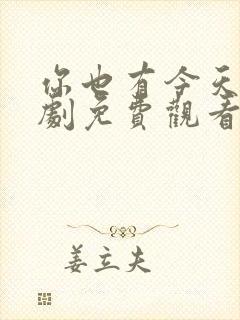 你也有今天
劇免費觀看
姜立夫